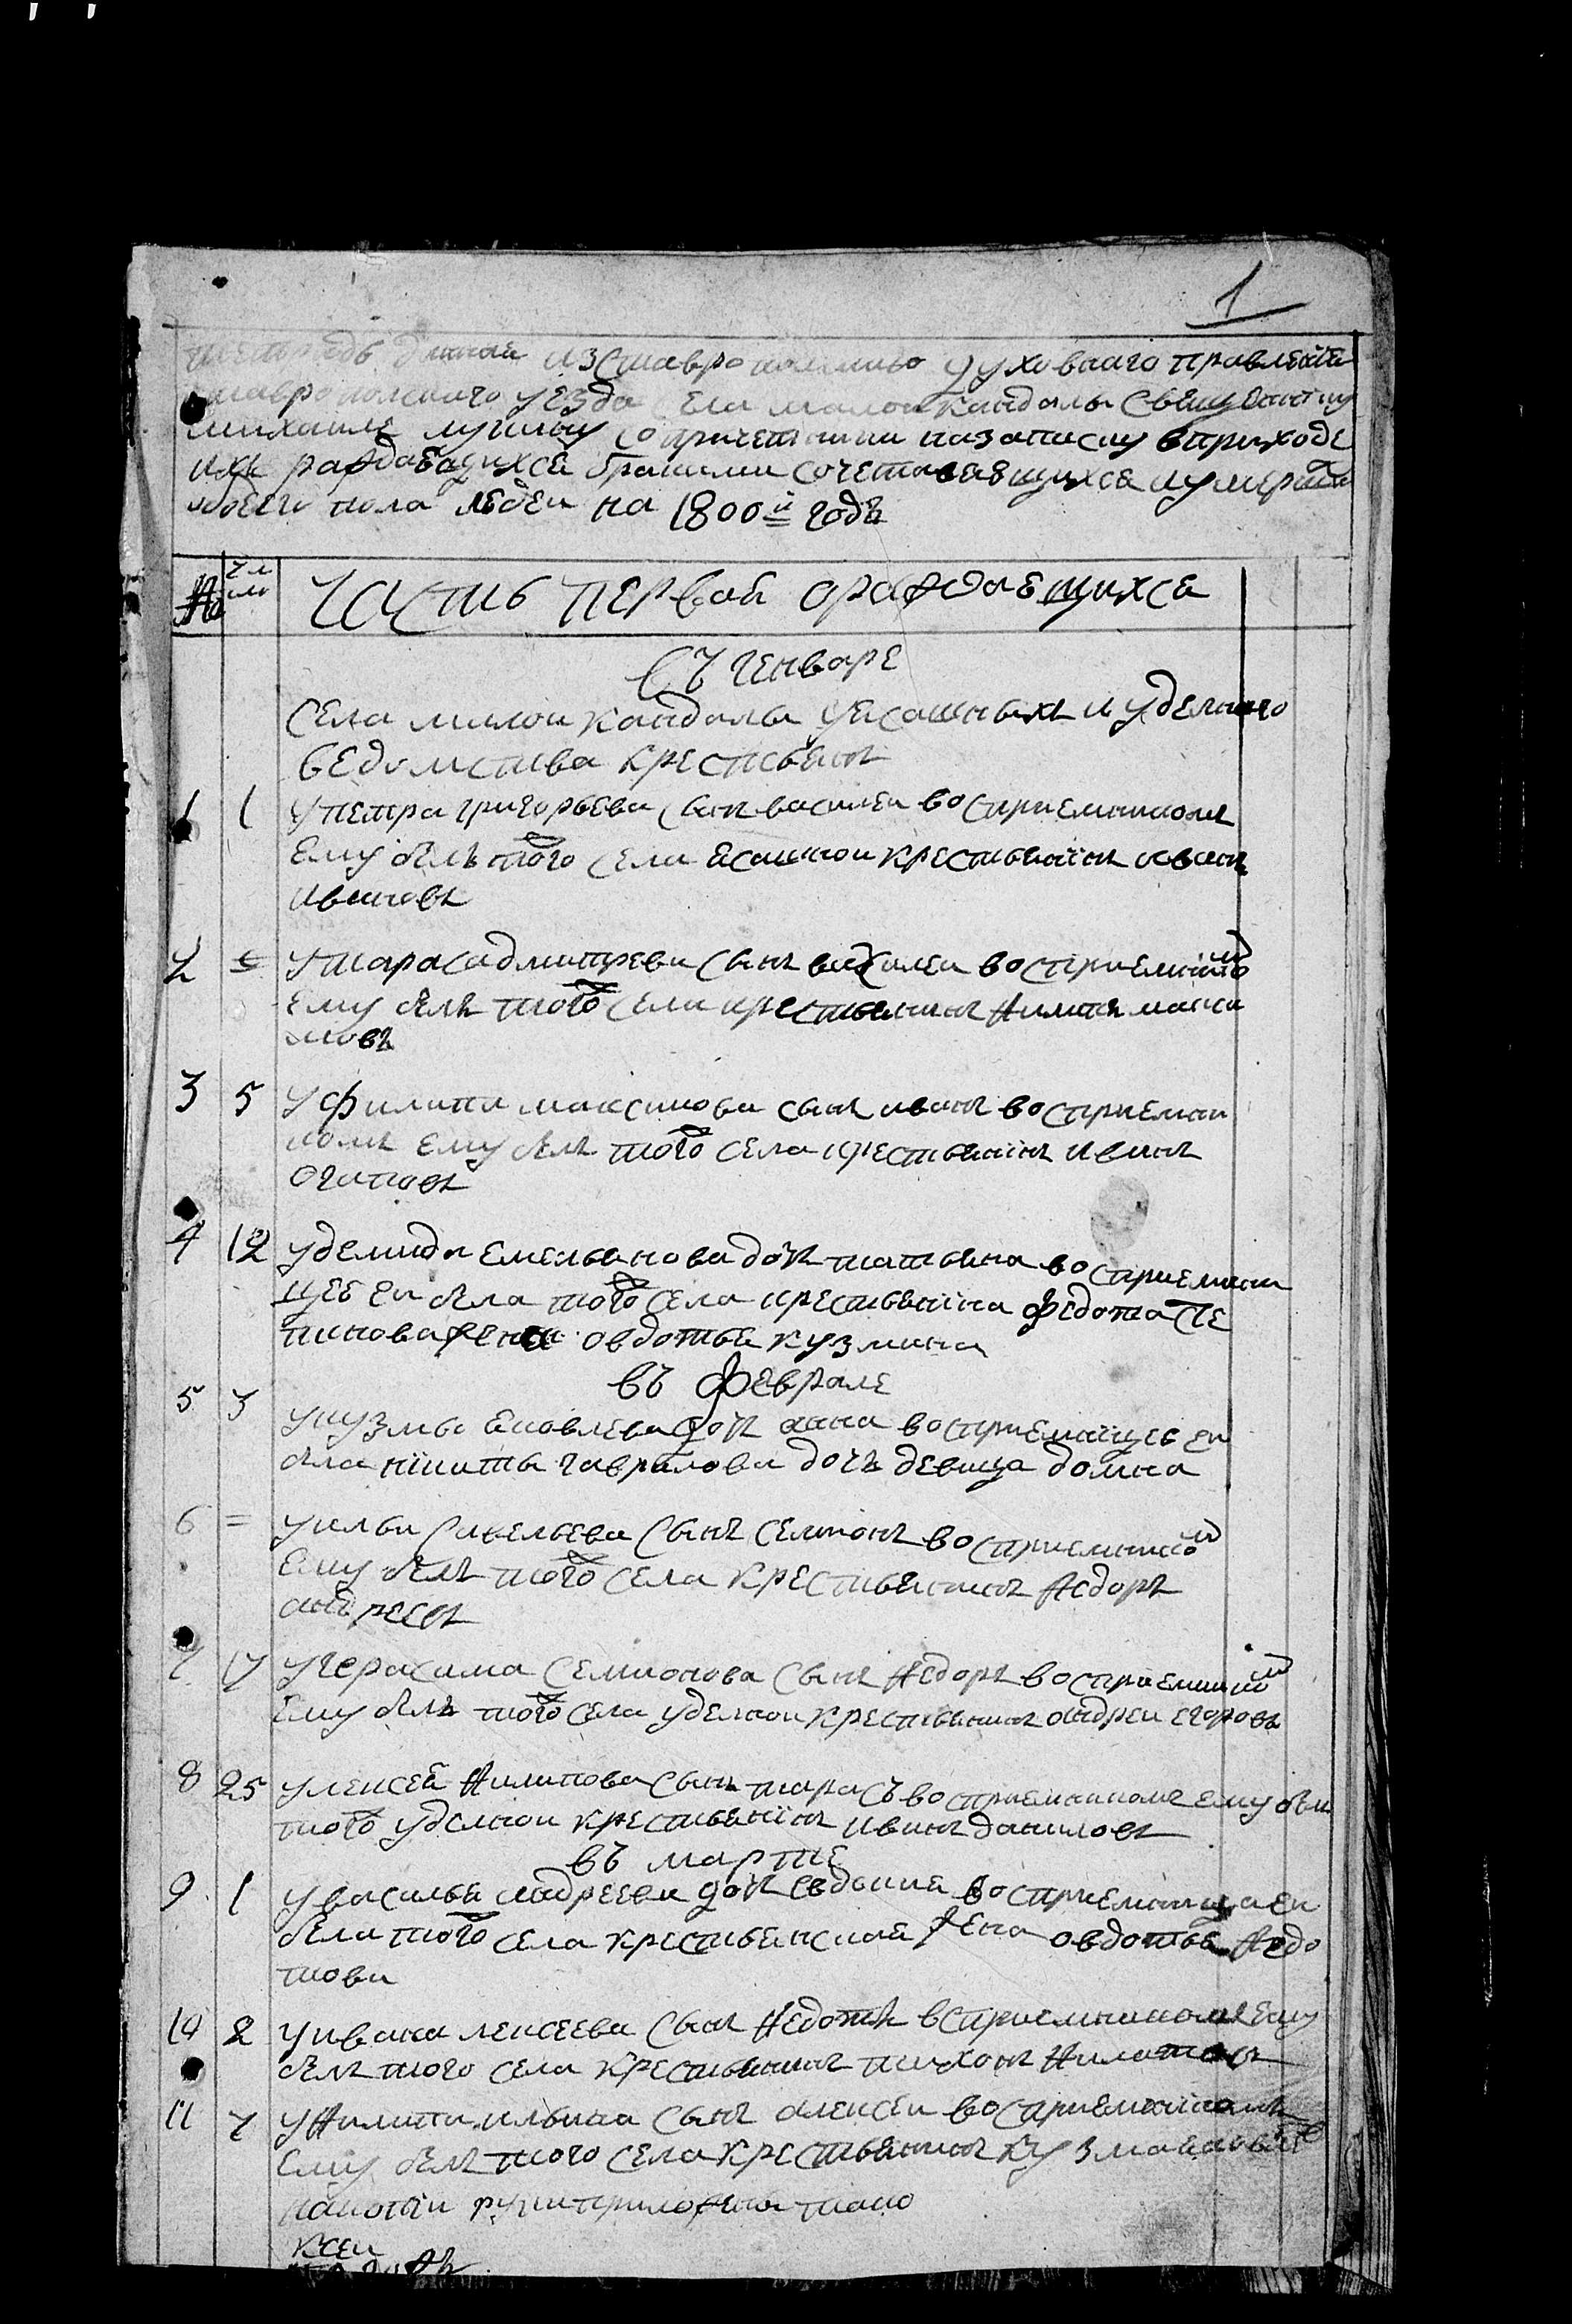 1
тетрадь данная изставропольского духовнаго правления
ставропольского уезда села малои кандалы священнику
михаиле лукину сопричетники назаписку вприходе
ихъ раждающихся браками сочетавающихся иумерших
обоего пола людеи на 1800й годъ
№ чис ло Часть первая ораждающихся
Въ генваре
села малои кандалы уясашныхъ и уделного
ведомства крестьянъ
1 1 упетра григорьева сынъ василеи восприемникомъ
ему былъ тогожъ села ясашнои крестьянинъ иванъ
ивановъ
2 = утараса дмитрева сынъ василеи восприемником
ему былъ тогожъ села крестьянинъ Филипъ макси
мовъ
3 5 уфилипа максимова сынъ иванъ восприемни
комъ ему былъ тогожъ села крестьянинъ иванъ
осиповъ
4 12 удемида емельянова дочь татьяна восприемни
цею еи была тогожъ села крестьянина федота Пе
трова жена овдотья кузмина
въ феврале
5 3 укузмы яковлева дочь анна восприемницею еи
была никиты гаврилова дочь девица домна
6 = уильи савельева сынъ семионъ восприемником
ему былъ тогожъ села крестьянинъ Федоръ
андреевъ
7 17 угерасима семионова сынъ Федоръ восприемником
ему былъ тогожъ села уделнои крестьянинъ андреи егоровъ
8 25 улексея Филипова сынъ тарасъ восприемникомъ ему былъ
тогожъ уделнои крестьянинъ иванъ даниловъ
въ марте
9 1 увасилья андреева дочь евдокия восприемница еи
была тогожъ села крестьянская жена овдотья Федо
това
10 2 уивана лексеева сынъ Федотъ восприемникомъ ему
былъ тогожъ села крестьянинъ тихонъ Филатовъ
11 7 уФилипа ильина сынъ алексеи восприемникомъ
ему былъ того села крестьянинъ кузма яковлев